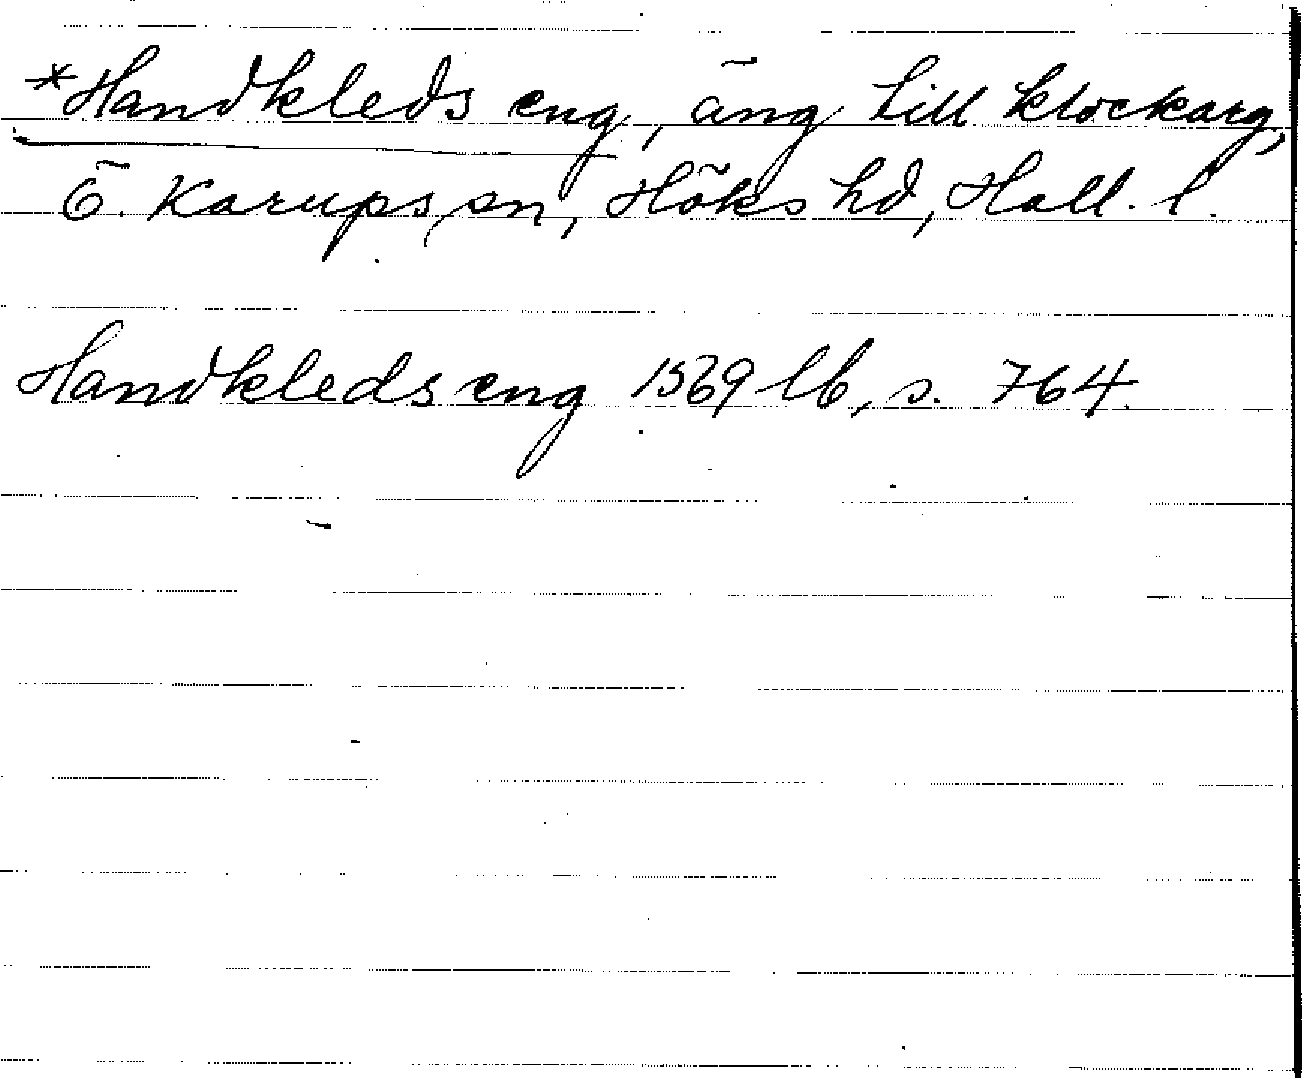 *Handkleds eng, äng till klockarg,
Ö. Karups sn, Höks hd, Hall. l.
Handkleds eng 1569 lb, s. 764.